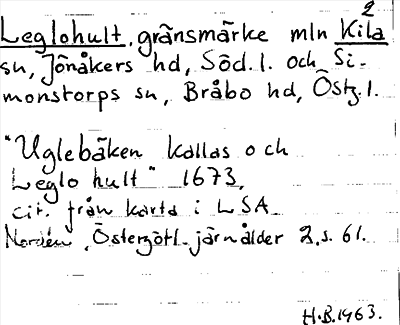 2
Leglohult, gränsmärke mln Kila
sn, Jönåkers hd, Söd. l. och Si-
monstorps sn, Bråbo hd, Östg. l.
"Uglebäken kallas och
Leglo hult" 1673,
cit. från karta i LSA
Nordén, Östergötl. järnålder 2, s. 61.
H.B. 1963.